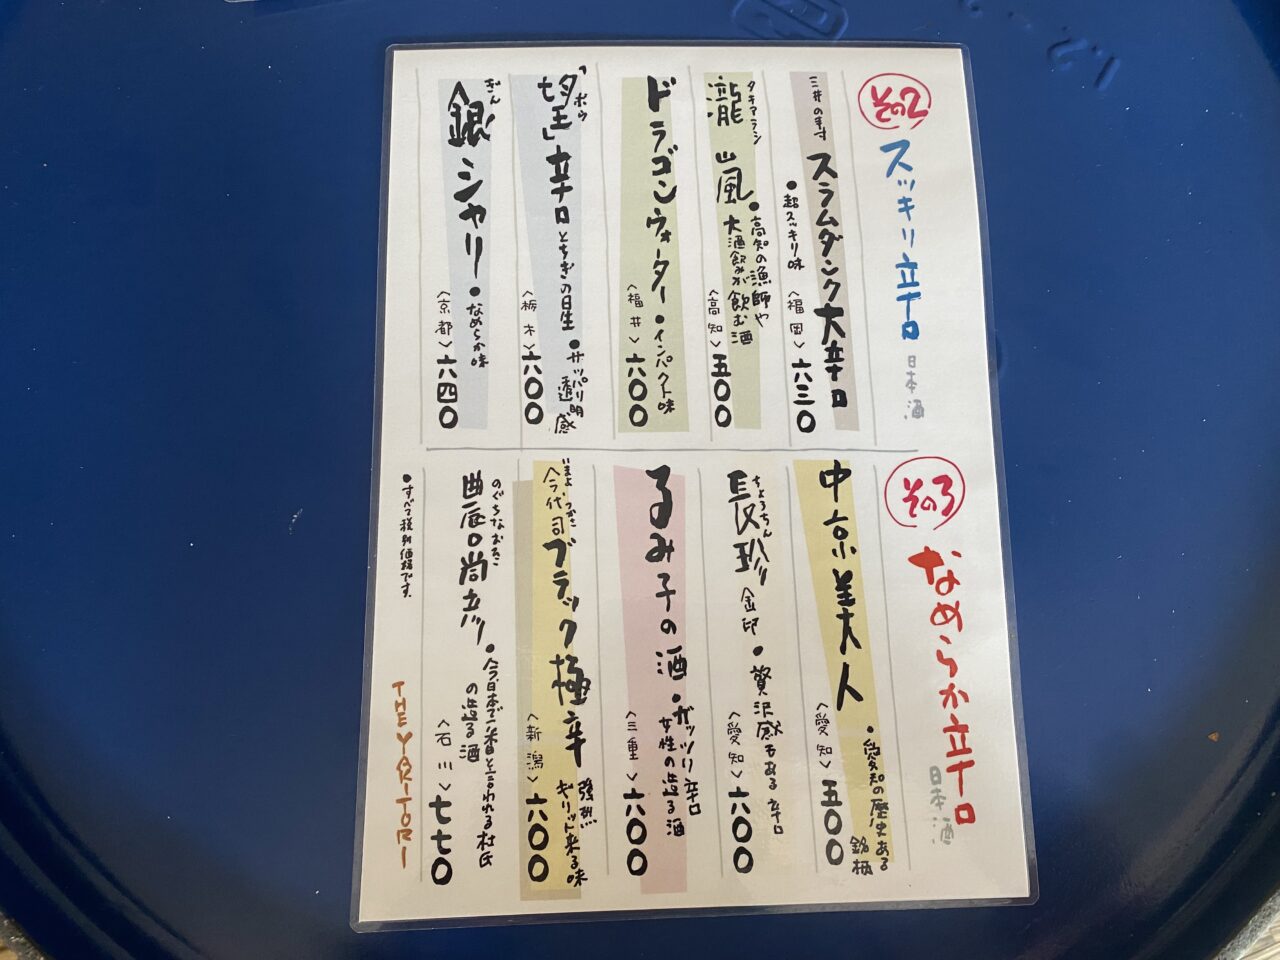 その2
スッキリ辛口
日本酒
三井の寿
スラムダンク大辛口
●超スッキリ味
〈福岡〉六三〇
タキアラシ
瀧嵐
●高知の漁師や
大酒飲みが飲む酒
〈高知〉五〇〇
ドラゴンウォーター
●インパクト味
〈福井〉六〇〇
ボウ
「望」辛口
とちぎの日生
●サッパリ透明感
〈栃木〉六〇〇
ぎん
銀シャリ
●なめらか味
〈京都〉六四〇
その3
なめらか辛口
日本酒
中京美人
●愛知の歴史ある
銘柄
〈愛知〉五〇〇
ちょうちん
長珍
金印
●贅沢感もある辛口
〈愛知〉六〇〇
るみ子の酒
●ガッツリ辛口
女性の造る酒
〈三重〉六〇〇
いまよつかさ
今代司
ブラック極辛
強烈
ギリッと来る味
〈新潟〉六〇〇
のぐちなおひこ
農口尚彦
●今日本で一番と言われる杜氏
の造る酒
〈石川〉七七〇
●すべて税別価格です。
THE YAKITORI